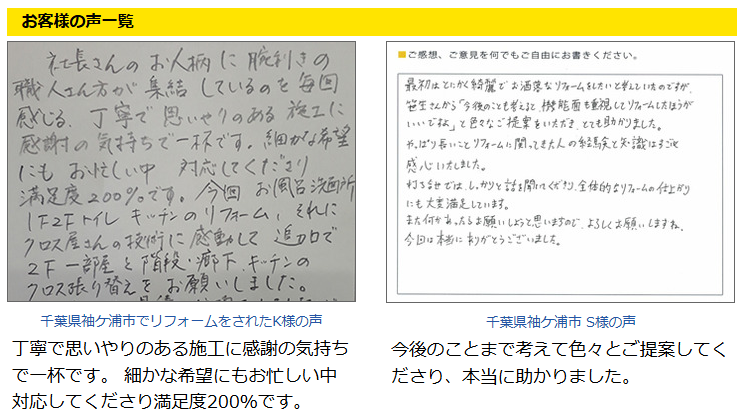 お客様の声一覧
社長さんのお人柄に腕利きの
職人さん方が集結しているのを毎回
感じる、丁寧で思いやりのある施工に
感謝の気持ちで一杯です。細かな希望
にもお忙しい中 対応してくださり
満足度200%です。今回 お風呂洗面所
1F2Fトイレ キッチンのリフォーム、それに
クロス屋さんの技術に感動して 追加で
2F一部屋と階段・廊下、キッチンの
クロス張り替えをお願いしました。
千葉県袖ケ浦市でリフォームをされたK様の声
丁寧で思いやりのある施工に感謝の気持ち
で一杯です。 細かな希望にもお忙しい中
対応してくださり満足度200%です。
■ご感想、ご意見を何でもご自由にお書きください。
最初はとにかく綺麗でお洒落なリフォームをしたいと考えていたのですが、
笹生さんから「今後のことも考えると機能面も重視してリフォームしたほうが
いいですよ」と色々なご提案をいただき、とても助かりました。
やっぱり長いことリフォームに関ってきた人の経験と知識はすごいと
感心いたしました。
打ち合せでは、しっかりと話を聞いてくださり、全体的なリフォームの仕上がり
にも大変満足しています。
また何かあったらお願いしようと思いますので、よろしくお願いしますね。
今回は本当にありがとうございました。
千葉県袖ケ浦市 S様の声
今後のことまで考えて色々とご提案してく
ださり、本当に助かりました。